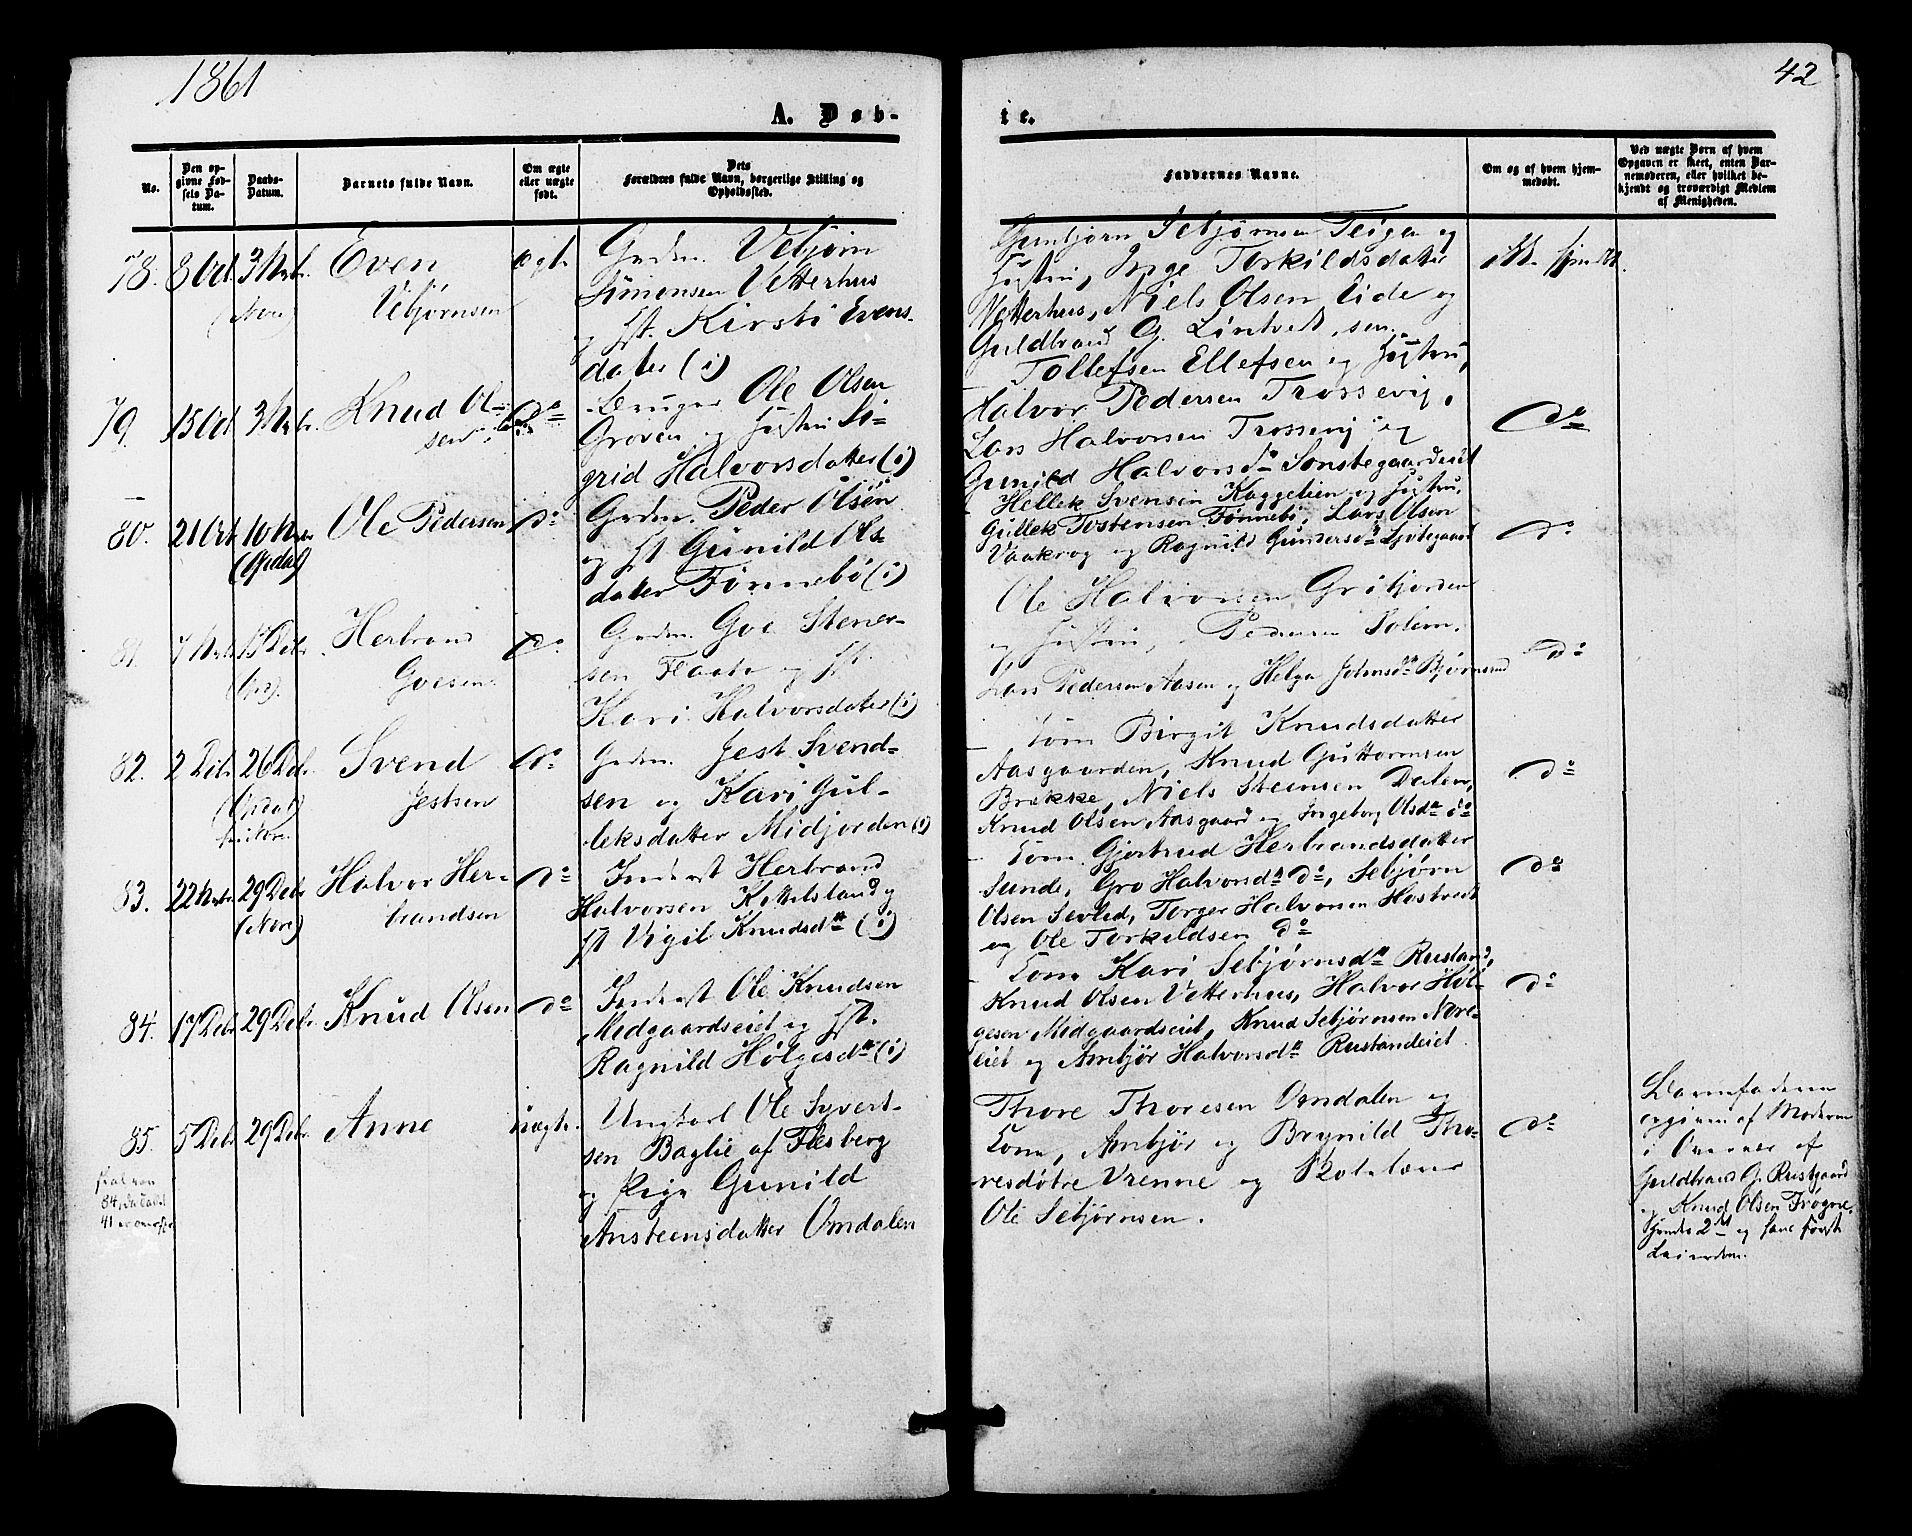 1861
42
A. Døb-
te.
No.
Den op-
givne Fød-
sels Da-
tum.
Daabs-
Datum.
Barnets fulde Navn.
Om ægte
eller uægte
født.
Dets
Forældres fulde Navn, borgerlige Stilling og
Opholdssted.
Faddernes Navne.
Om og af hvem hjem-
medøbt.
Ved uægte Børn af hvem
Opgaven er skeet, enten Bar-
nemoderen, eller hvilket be-
kjendt og troværdigt Medlem
af Menigheden.
78. 8 Oct. 3 Nvbr. (Nore)
Even
Vebjørnsen
ægte
Gaardm. Vebjørn
Simensen Vetterhus
og Hst. Kirsti Evens-
datter (i)
Gunbjørn Sebjørnsen Teigen og
Hustru, Inge Torkildsdatter
Vetterhus, Niels Olsen Eide og
Guldbrand G. Lintvet, sen.
ikke hjmdbt.
79. 15 Oct. 3 Nvbr.
Knud Ol-
sen
Do
Bruger Ole Olsen
Groven og Hustru Si-
grid Halvorsdatter (i)
Tollefsen Ellefsen og Hustru,
Halvor Pedersen Trossevig,
Lars Halvorsen Trossevig og
Gunild Halvorsdr Sønstegaardseiet
Do
80. 21 Oct. 10 Nvbr (Opdal)
Ole Pedersen
Do
Gaardm. Peder Olsen
og Hst Gunild Ols-
datter Tønnebø (i)
Hellek Svensen Kaggelien og Hustru,
Gullek Tostensen Tønnebø, Lars Olsen
Vaakrog og Ragnild Gundersdr Sjøtegaard
Do
81. 7 Nvbr 15 Debr.
Herbrand
Goesen
Do
Gaardm. Goe Stener-
sen Flaata og Hst.
Kari Halvorsdatter (i)
Ole Halvorsen Grøtjorden
og Hustru, Pedersen Solem,
Lars Pedersen Aasen og Helga Johnsdr Bjørnerud
Do
82. 2 Debr. 26 Debr. (Opdal)
Svend
Jestsen
Do
Gaardm. Jest Svend-
sen og Kari Gul-
leksdatter Midjorden (i)
Kone Birgit Knudsdatter
Aasgaarden, Knud Guttormsen
Brække, Niels Steensen Dalen,
Knud Olsen Aasgaard og Ingeborg Olsdr i
Do
83. 22 Nvbr. 29 Debr. (Nore)
Halvor Her-
brandsen
Do
Inderst Herbrand
Halvorsen Kittilsland og
Hst Vigil Knudsdr (i)
Kone Gjertrud Herbrandsdatter
Sunde, Gro Halvorsdr do, Sebjørn
Olsen Sevled, Torger Halvorsen Hostvedt
og Ole Torkildsen do
Do
84. 17 Debr. 29 Debr.
Knud Olsen
Do
Inderst Ole Knudsen
Midgaardseiet og Hst.
Ragnild Holgesdr (i)
Kone Kari Sebjørnsdr Rustand,
Knud Olsen Vetterhus, Halvor Hol-
gesen Midgaardseiet, Knud Sebjørnsen Nore-
eiet og Ambjør Halvorsdr Rustandeiet
Do
85. 5 Debr. 29 Debr.
Anne
uægte.
Ungkarl Ole Syvert-
sen Baglie af Flesberg
og Pige Gunild
Ansteensdatter Omdalen
Thore Thoresen Omdalen og
Kone, Ambjør og Brynild Tho-
resdøtre Vrenne og Skolelærer
Ole Sebjørnsen.
Do
Barnefaderen
opgiven af Moderen
i Overvær af
Guldbrand G. Rustgaard
og Knud Olsen Frøgne,
Hendes 2det og hans første
Leiermaal.